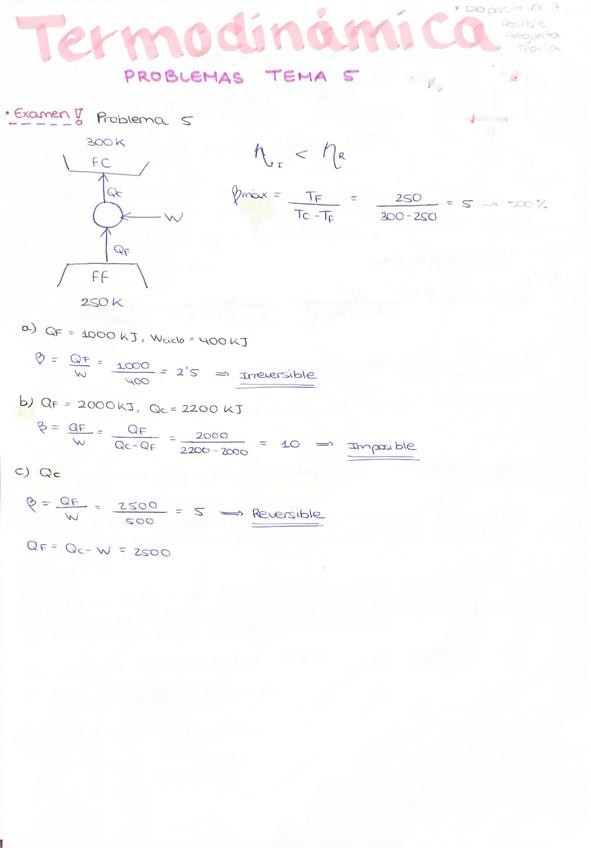 Termodinámica
* Diapositiva 7
posible
pregunta
Teoría
PROBLEMAS TEMA 5
• Examen! Problema 5
300K
FC
Qc
W
QF
FF
250K
η_I < η_R
βmáx = TF / (Tc - TF) = 250 / (300-250) = 5 → 500%
a) QF = 1000KJ, Wciclo = 400KJ
β = QF / W = 1000 / 400 = 2'5 ⇒ Irreversible
b) QF = 2000KJ, Qc = 2200 KJ
β = QF / W = QF / (Qc-QF) = 2000 / (2200-2000) = 10 ⇒ Imposible
c) Qc
β = QF / W = 2500 / 500 = 5 ⇒ Reversible
QF = Qc - W = 2500